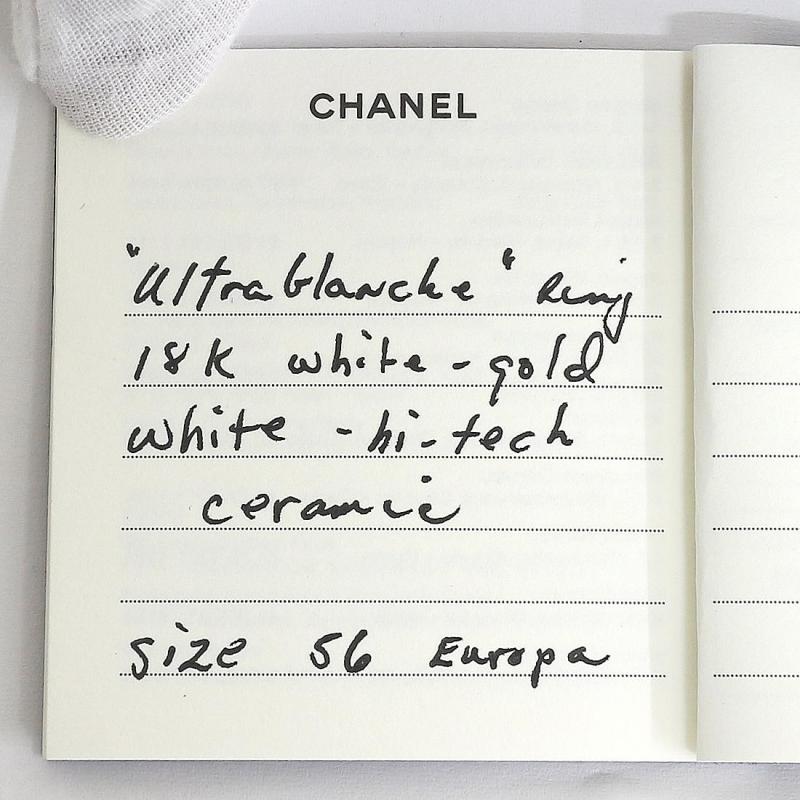 CHANEL
"Ultrablanche" Ring
18K white - gold
white - hi-tech
ceramic
size 56 Europa